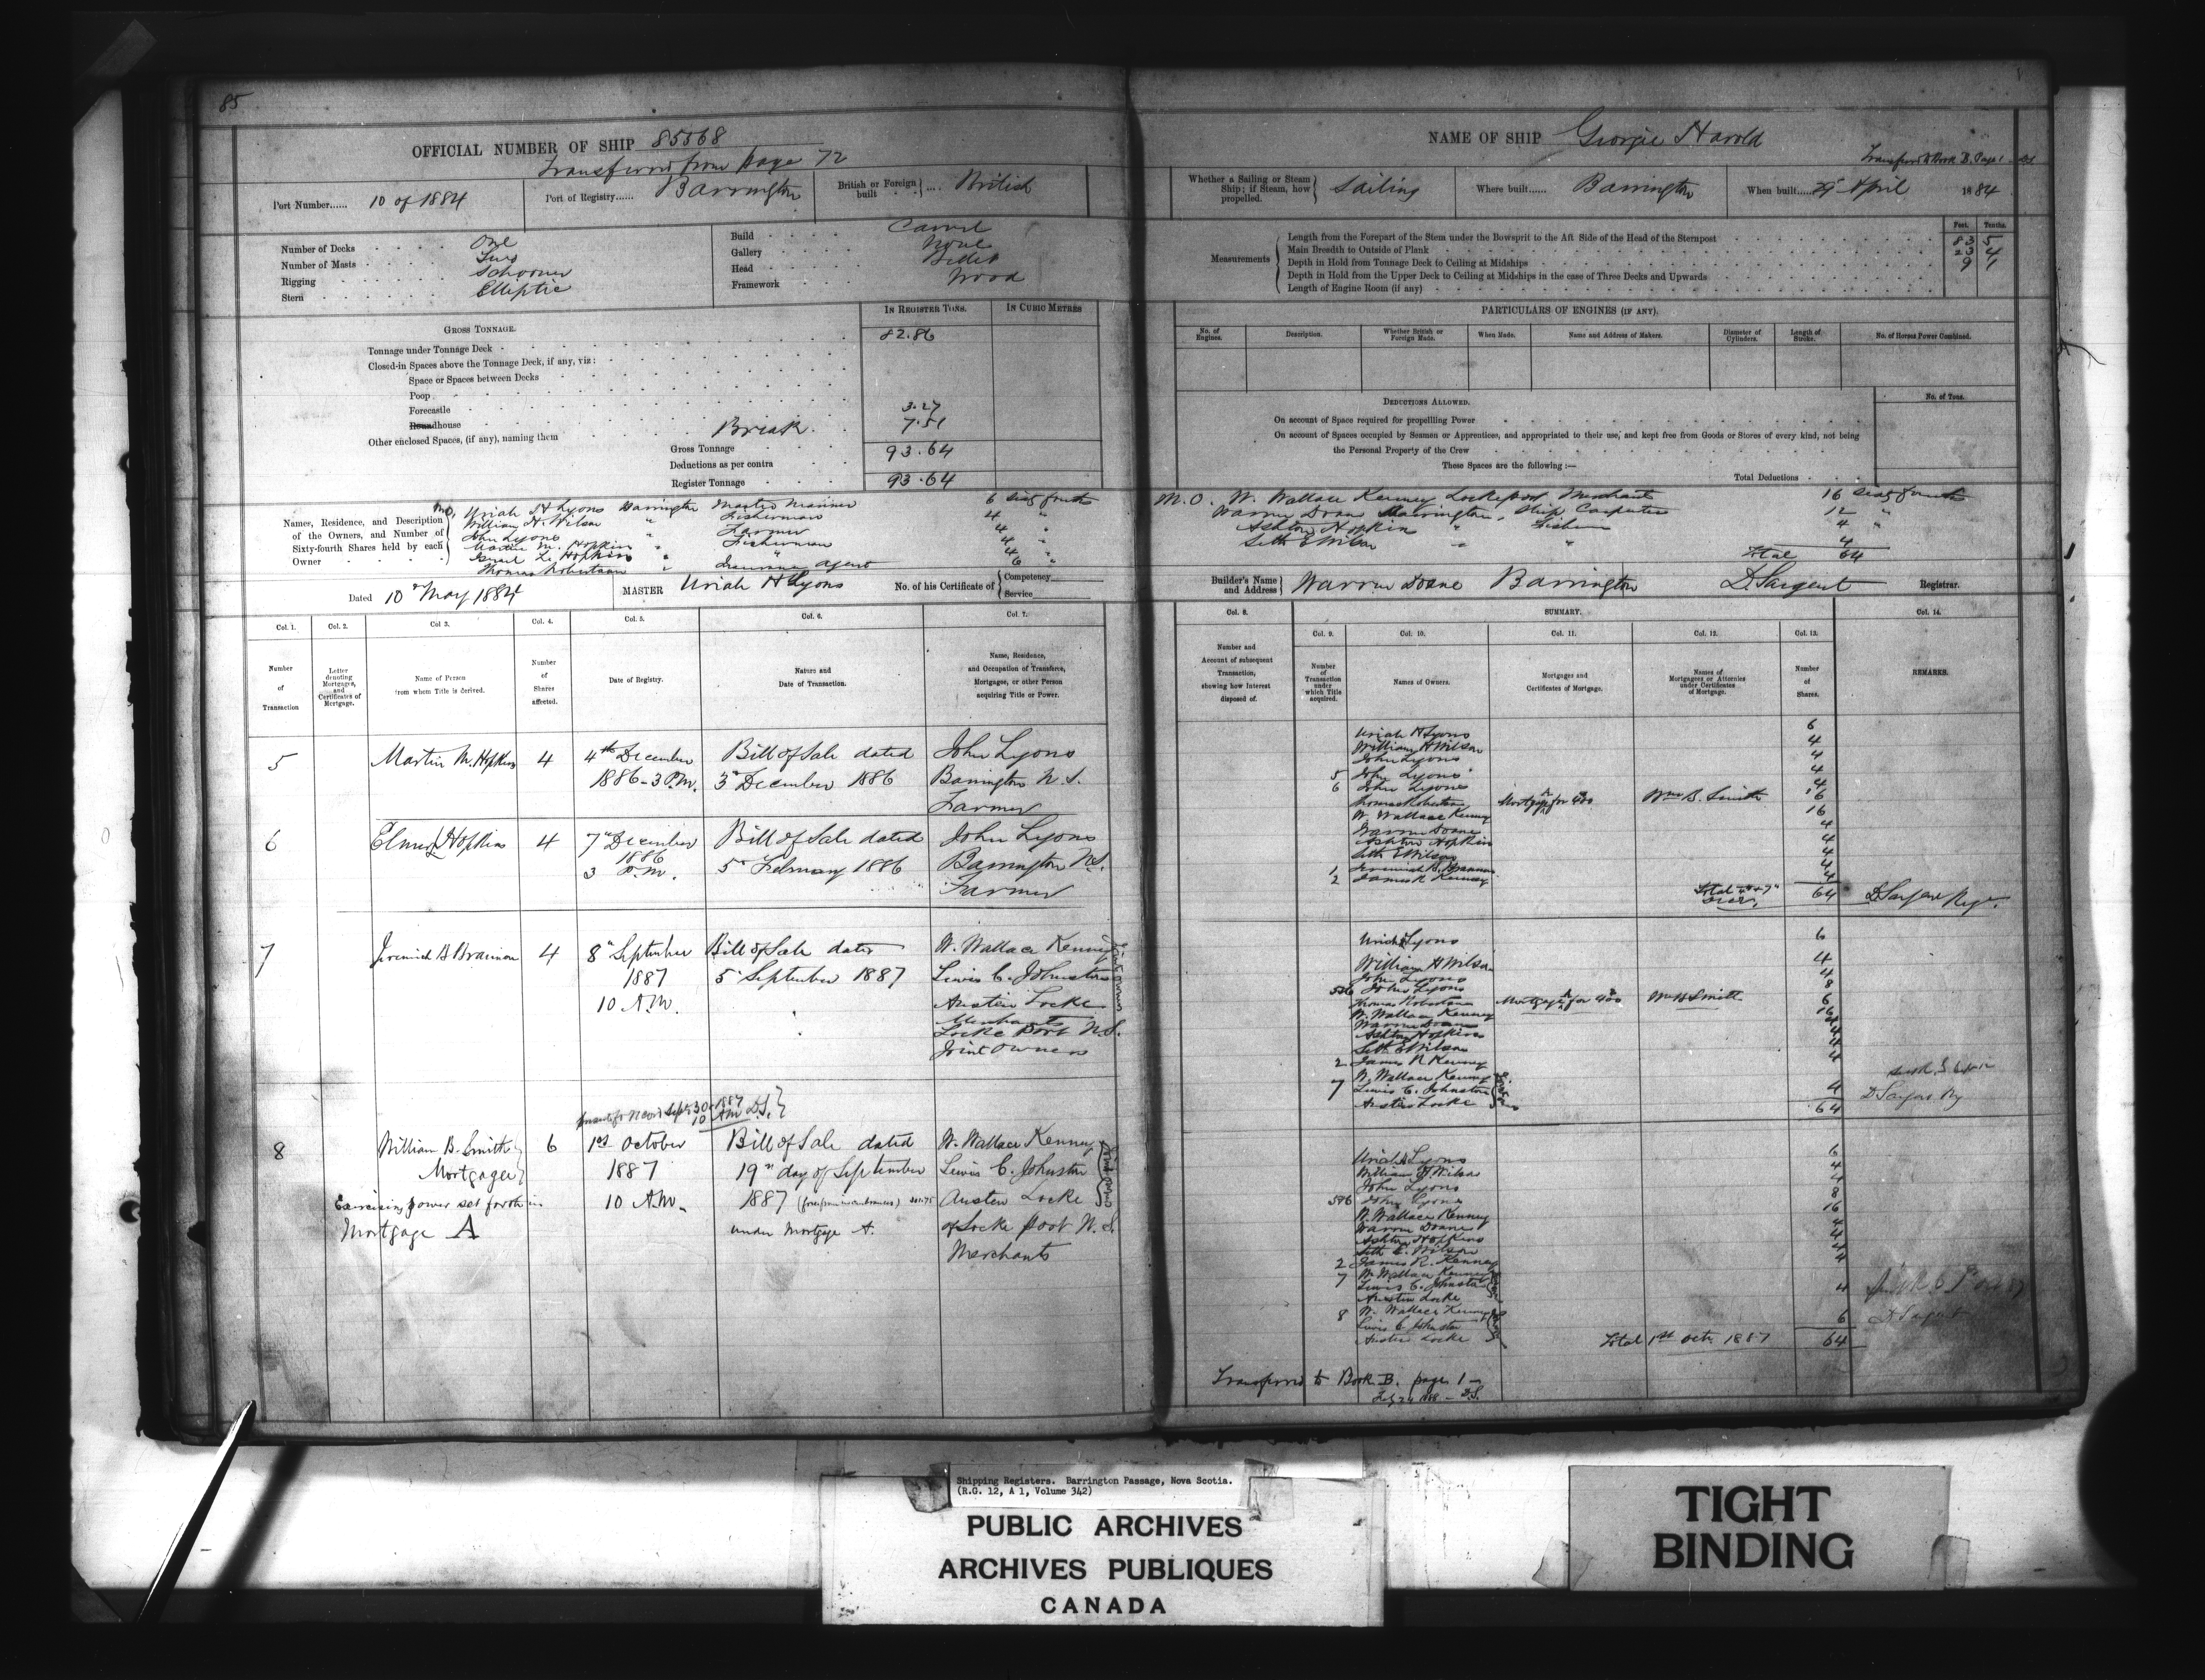 85
OFFICIAL NUMBER OF SHIP 85568
Transferred from page 72
Port Number...... 10 of 1884
Port of Registry...... Barrington
British or Foreign built .... British
Number of Decks One
Number of Masts Two
Rigging Schooner
Stern Elliptic
Build Carvel
Gallery None
Head Billet
Framework Wood
GROSS TONNAGE.
IN REGISTER TONS.
IN CUBIC METRES
Tonnage under Tonnage Deck 82.86
Closed-in Spaces above the Tonnage Deck, if any, viz:
Space or Spaces between Decks
Poop
Forecastle 3.27
Roundhouse Break 7.51
Other enclosed Spaces, (if any), naming them
Gross Tonnage 93.64
Deductions as per contra
Register Tonnage 93.64
Names, Residence, and Description of the Owners, and Number of Sixty-fourth Shares held by each Owner
M.O. Uriah H Lyons Barrington Master Mariner 6 sixty fourths
William H. Wilson " Fisherman 4 "
John Lyons " Farmer 4 "
Martin M. Hopkins " Fisherman 4 "
Hopkins " " 4 "
Thomas Robertson " Insurance agent 6 "
Dated 10th May 1884
MASTER Uriah H Lyons
No. of his Certificate of Competency
Service
Col. 1. Col. 2. Col 3. Col. 4. Col. 5. Col. 6. Col. 7.
Number of Transaction
Letter denoting Mortgages, and Certificates of Mortgage.
Name of Person from whom Title is derived.
Number of Shares affected.
Date of Registry.
Nature and Date of Transaction.
Name, Residence, and Occupation of Transferee, Mortgagee, or other Person acquiring Title or Power.
5 Martin M. Hopkins 4 4th December Bill of Sale dated John Lyons
1886 - 3 P.M. 3rd December 1886 Barrington N.S.
Farmer
6 Hopkins 4 7th December Bill of Sale dated John Lyons
1886
3 P.M. 5th February 1886 Barrington N.S.
Farmer
7 Jeremiah B Brannen 4 8th September Bill of Sale dated W. Wallace Kenney
1887 5th September 1887 Lewis C. Johnston
10 A.M. Austin Locke
Merchants
Locke Port N.S.
Joint Owners
Sept 30 1887
10 AM D.S.
8 William B. Smith 6 1st October Bill of Sale dated W. Wallace Kenney
Mortgagee 1887 19th day of September Lewis C. Johnston
Exercising power set forth in 10 A.M. 1887 Austen Locke
Mortgage A under Mortgage A. of Locke Port N.S.
Merchants
Joint Owners
NAME OF SHIP Georgie Harold
Transferred to Book B. Page 1
Whether a Sailing or Steam Ship; if Steam, how propelled. Sailing
Where built...... Barrington
When built...... 29th April 1884
Feet. Tenths.
Measurements
Length from the Forepart of the Stem under the Bowsprit to the Aft Side of the Head of the Sternpost 83 5
Main Breadth to Outside of Plank 23 4
Depth in Hold from Tonnage Deck to Ceiling at Midships 9 1
Depth in Hold from the Upper Deck to Ceiling at Midships in the case of Three Decks and Upwards
Length of Engine Room (if any)
PARTICULARS OF ENGINES (IF ANY).
No. of Engines.
Description.
Whether British or Foreign Made.
When Made.
Name and Address of Makers.
Diameter of Cylinders.
Length of Stroke.
No. of Horses Power Combined.
DEDUCTIONS ALLOWED.
No. of Tons.
On account of Space required for propelling Power
On account of Spaces occupied by Seamen or Apprentices, and appropriated to their use, and kept free from Goods or Stores of every kind, not being the Personal Property of the Crew
These Spaces are the following:—
Total Deductions
M.O. W. Wallace Kenney Lockeport Merchant 16 sixty fourths
Warren Doane Barrington, Ship Carpenter 12 "
Ashton Hopkins " 4 "
Seth E Wilson " " 4
Total 64
Builder's Name and Address Warren Doane Barrington
D. Sargent Registrar.
Col. 8. SUMMARY. Col. 14.
Col. 9. Col. 10. Col. 11. Col. 12. Col. 13.
Number and Account of subsequent Transaction, showing how Interest disposed of.
Number of Transaction under which Title acquired.
Names of Owners.
Mortgages and Certificates of Mortgage.
Names of Mortgagees or Attornies under Certificates of Mortgage.
Number of Shares.
REMARKS.
Uriah H Lyons 6
William H Wilson 4
John Lyons 4
5 John Lyons 4
6 John Lyons 4
Thomas Robertson Mortgage A for 400 Wm B. Smith 6
W. Wallace Kenney 16
Warren Doane 4
Ashton Hopkins 4
Seth E Wilson 4
1 Jeremiah B. Brannen 4
2 James R Kenney 4
Total 64 D Sargent Regr.
Uriah H Lyons 6
William H Wilson 4
John Lyons 4
5&6 John Lyons 8
Thomas Robertson Mortgage A for 400 Wm B Smith 6
W. Wallace Kenney 16
Warren Doane 4
Ashton Hopkins 4
Seth E Wilson 4
2 James R Kenney 4
W. Wallace Kenney
7 Lewis C. Johnston 4
Austin Locke
64
D Sargent Reg
Uriah H Lyons 6
William H. Wilson 4
John Lyons 4
5&6 John Lyons 8
W. Wallace Kenney 16
Warren Doane 4
Ashton Hopkins 4
Seth E. Wilson 4
2 James R. Kenney 4
7 W. Wallace Kenney
Lewis C. Johnston
Austin Locke 4
8 W. Wallace Kenney
Lewis C Johnston 6
Austin Locke
D Sargent
Total 1st Octr 1887 64
Transferred to Book B. page 1
D.S.
Shipping Registers. Barrington Passage, Nova Scotia.
(R.G. 12, A 1, Volume 342)
PUBLIC ARCHIVES
ARCHIVES PUBLIQUES
CANADA
TIGHT
BINDING